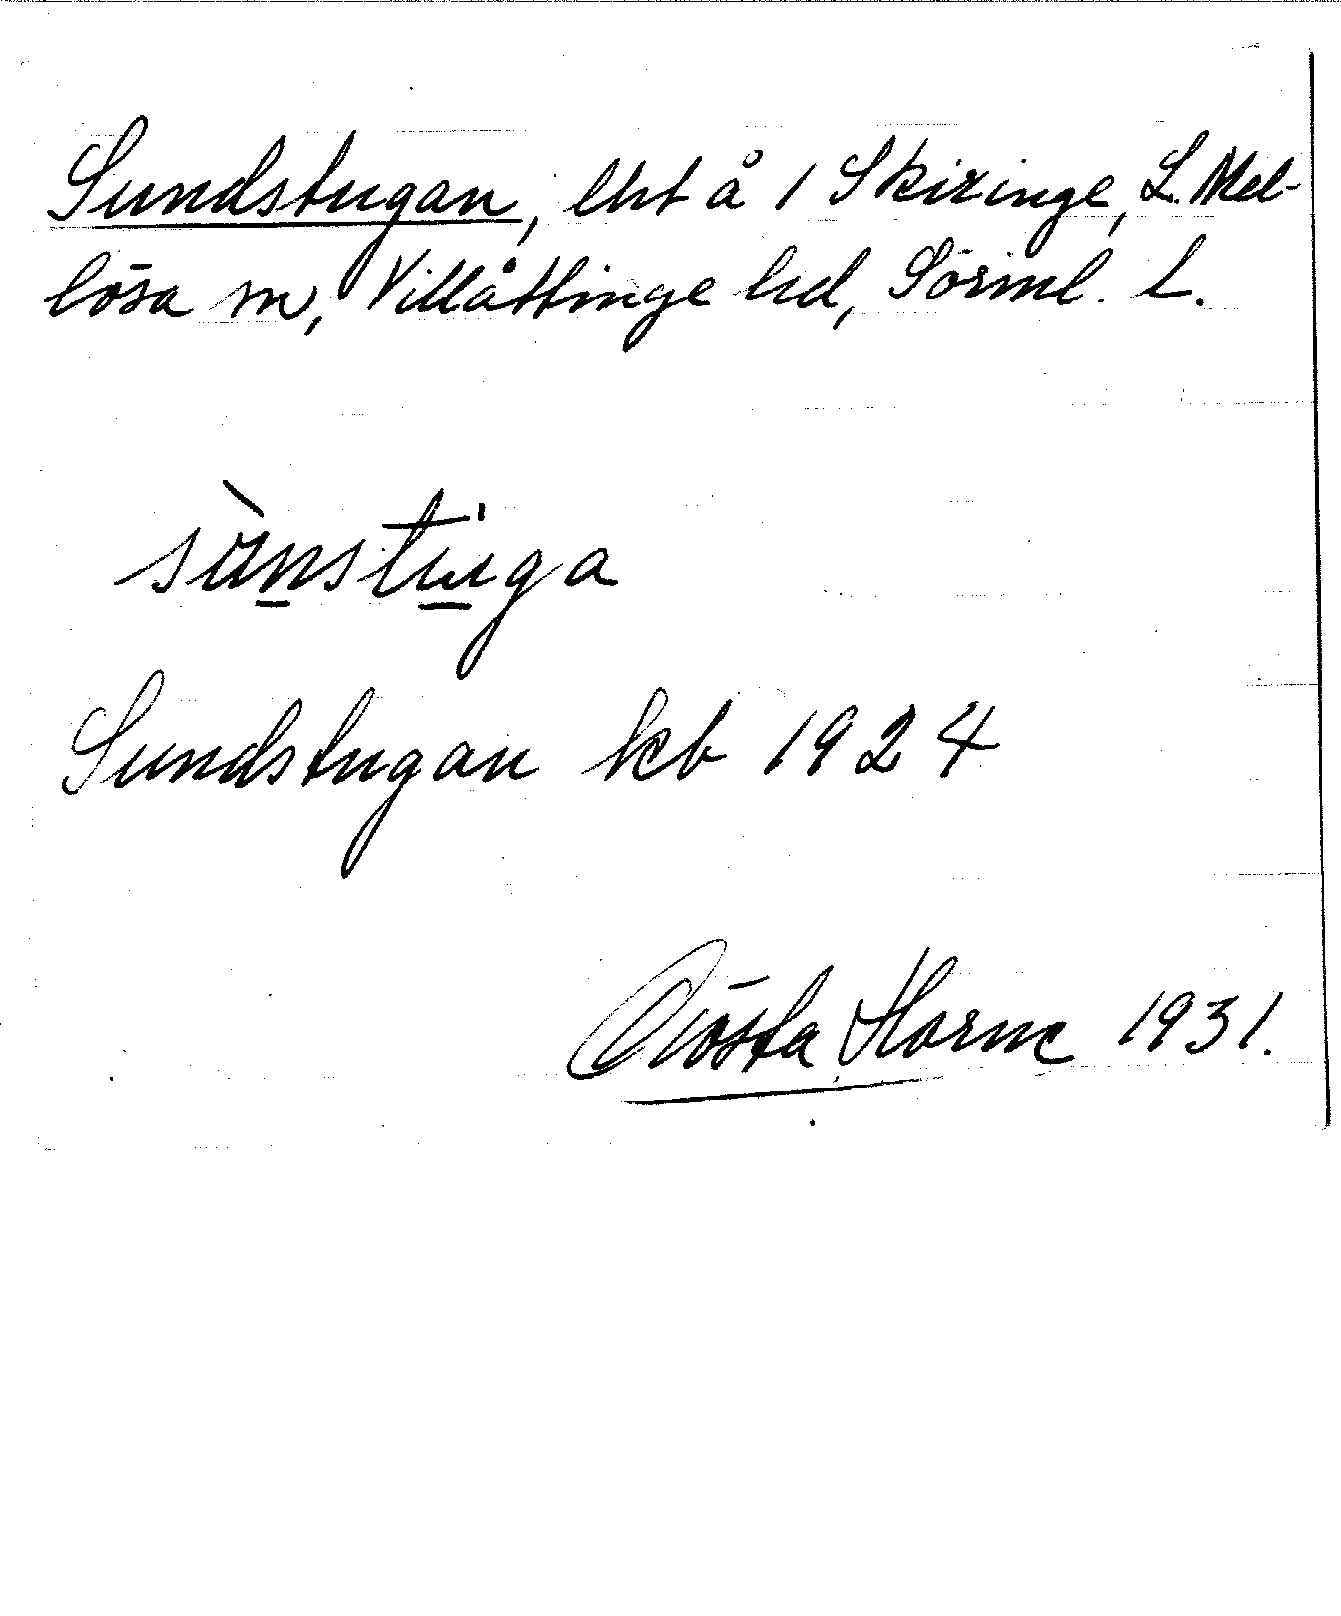 Sundstugan, lht å 1 Skiringe, L. Mel-
lösa sn, Villåttinge hd, Sörml. L.
sùnstu̠ga
Sundstugan kb 1924
Gösta Horne 1931.